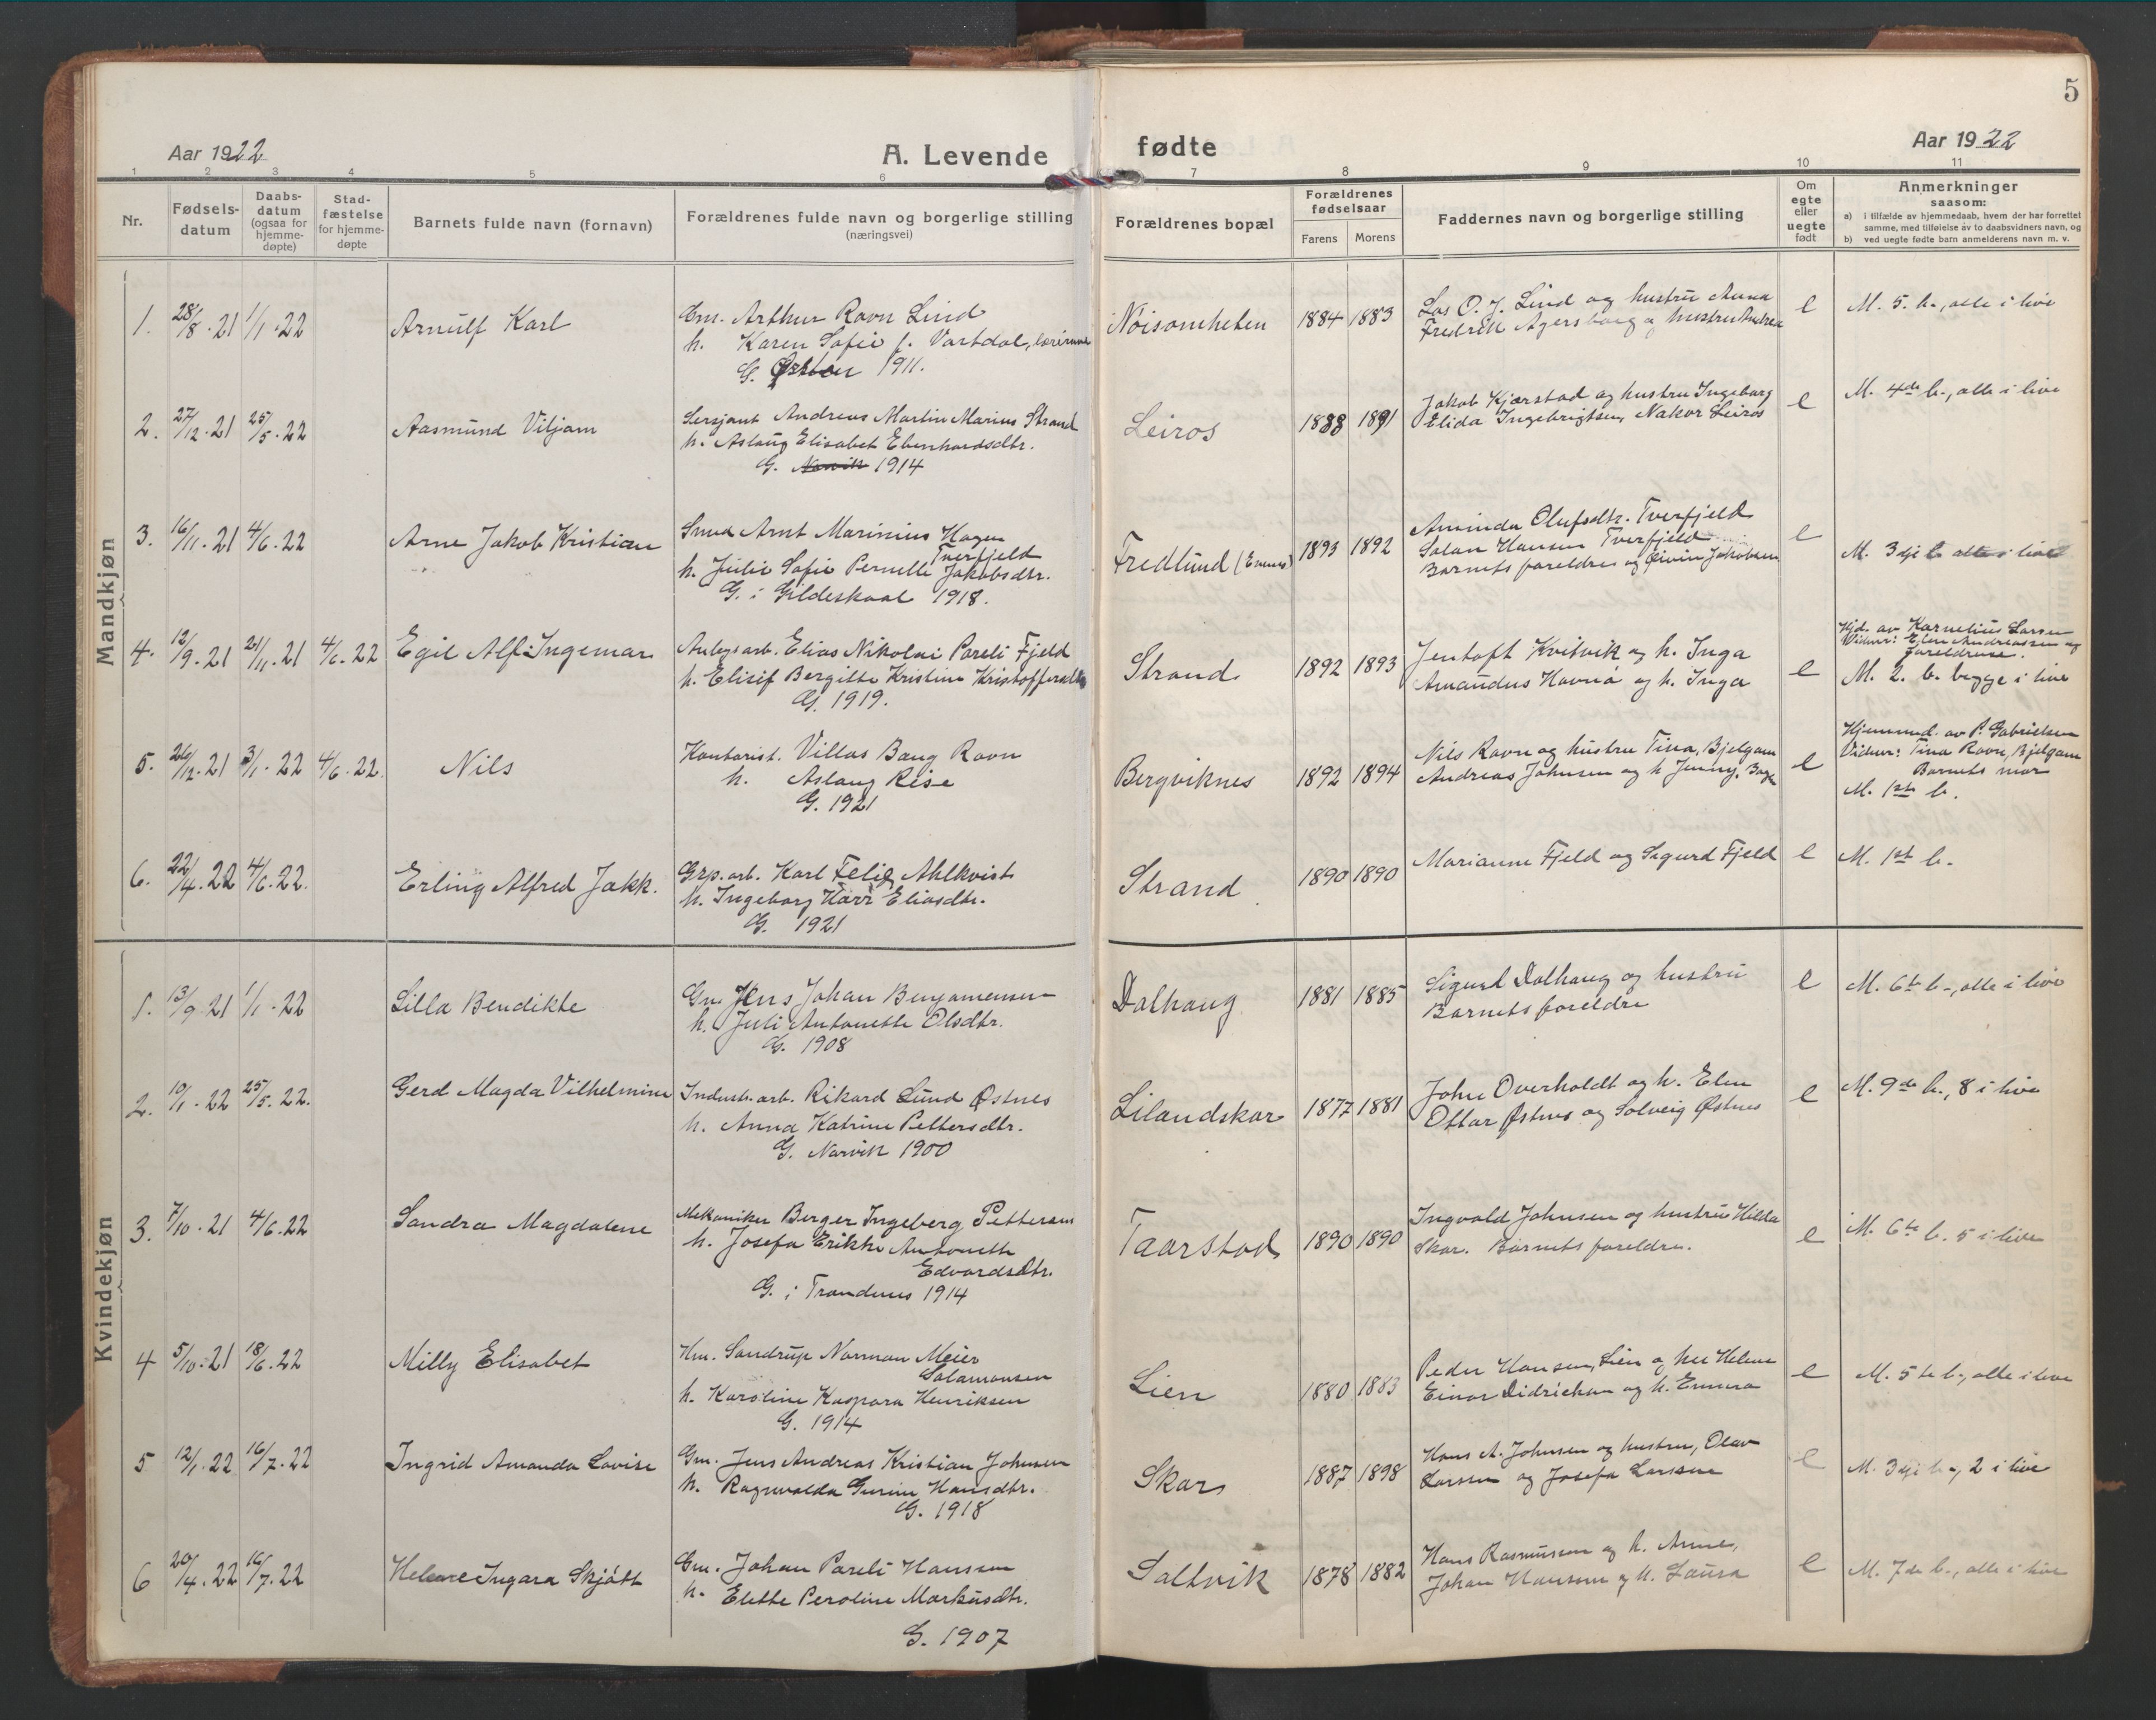 5
Aar 1922
A. Levende fødte
Aar 1922
1 2 3 4 5 6 7 8 9 10 11
Nr.
Fødsels-
datum
Daabs-
datum
(ogsaa for
hjemme-
døpte)
Stad-
fæstelse
for hjemme-
døpte
Barnets fulde navn (fornavn)
Forældrenes fulde navn og borgerlige stilling
(næringsvei)
Forældrenes bopæl
Forældrenes
fødselsaar
Farens Morens
Faddernes navn og borgerlige stilling
Om
egte
eller
uegte
født
Anmerkninger
saasom:
a) i tilfælde av hjemmedaab, hvem der har forrettet
samme, med tilføielse av to daabsvidners navn, og
b) ved uegte fødte barn anmelderens navn m. v.
Mandkjøn
1. 28/8.21 1/1.22 Arnulf Karl
Em. Arthur Ravn Lind
h. Karen Sofie f. Vartdal, lærerinne
G. 1911.
Noisomheten 1884 1883
O. J. Lind og hustru Anna
Fredrik Agersborg og hustru Andrea
e M. 5. b., alle i live
2. 27/12.21 25/5.22 Aasmund Viljam
Sersjant Andreas Martin Marius Strand
h. Aslaug Elisabet Ebenhardsdtr.
G. Narvik 1914
Leiros 1888 1891
Jakob Kjærstad og hustru Ingeborg
Elida Ingebrigtsen, Leiros
e M. 4de b., alle i live
3. 16/11.21 4/6.22 Arne Jakob Kristian
Smed Arnt Marinius Hagen
Tverfjeld
h. Julie Sofie Pernelle Jakobsdtr.
G. i Gildeskaal 1918.
Fredlund (Evenes) 1893 1892
Aminda Olufsdtr. Tverfjeld
Hansen Tverfjeld
Barnets foreldre og Eivin Jakobsen
e M. 3dje b. alle i live
4. 12/9.21 21/11.21 4/6.22 Egil Alf Ingemar
Anlegsarb. Elias Nikolai Pareli Fjeld
h. Elisif Bergitte Kristine Kristoffersdtr
G. 1919.
Strand 1892 1893
Jentoft Kvitvik og h. Inga
Amandus Havnå og h. Inga
e Hjd. av Kornelius Larsen
Vidner: Elen Andreassen og
foreldrene.
M. 2. b. begge i live
5. 26/12.21 3/1.22 4/6.22. Nils
Kontorist. Villas Bang Ravn
h. Aslaug Reise
G. 1921
Bergviknes 1892 1894
Nils Ravn og hustru Tina, Bjelgam
Andreas Johnsen og h Jenny,
e Hjemmed. av P. Gabrielsen
Vidner: Tina Ravn, Bjelgam
Barnets mor
M. 1ste b.
6. 22/4.22 4/6.22. Erling Alfred Jakk.
Grp. arb. Karl Felix Ahlkvist
h. Ingeborg Harr Eliasdtr.
G. 1921
Strand 1890 1890
Marianne Fjeld og Sigurd Fjeld
e M. 1ste b.
Kvindekjøn
1. 13/9.21 1/1.22 Lilla Bendikte
Gm Jens Johan Benjamensen
h. Juli Antonette Olsdtr.
G. 1908
Dalhaug 1881 1885
Sigurd Dalhaug og hustru
Barnets foreldre
e M. 6te b., alle i live
2. 10/1.22 25/5.22. Gerd Magda Vilhelmine
Industr. arb. Rikard Lund Østnes
h. Anna Katrine Pettersdtr.
G. Narvik 1900
Lilandskar 1877 1881
John Overholdt og h. Elen
Ottar Østnes og Solveig Østnes
e M. 9de b., 8 i live
3. 7/10.21 4/6.22 Sandra Magdalene
Mekaniker Berger Ingeberg Pettersen
h. Josefa Erikke Antonette
Edvardsdtr.
G. i Trondenes 1914
Taarstad 1890 1890
Ingvald Johnsen og hustru Hilda
Skar. Barnets foreldre.
e M. 6te b. 5 i live
4 5/10.21 18/6.22 Milly Elisabet
Hm. Sandrup Norman Meier
Salamonsen
h. Karoline Kaspara Henriksen
G. 1914
Lien 1880 1883
Peder Hansen, Lien og hu Helene
Einar Didriksen og h. Emma
e M. 5te b., alle i live
5 12/1.22 16/7.22 Ingrid Amanda Lovise
Gm. Jens Andreas Kristian Johnsen
h. Ragnvalda Gurine Hansdtr.
G. 1918
Skar 1887 1898
Hans A. Johnsen og hustru, Olav
Larssen og Josefa Larssen
e M. 3dje b., 2 i live
6 20/4.22 16/7.22 Helene Ingara Skjått
Gm. Johan Pareli Hanssen
h. Elette Peroline Markusdtr.
G. 1907
Saltvik 1878 1882
Hans Rasmussen og h. Anne,
Johan Hansen og h. Laura
e M. 7de b., alle i live